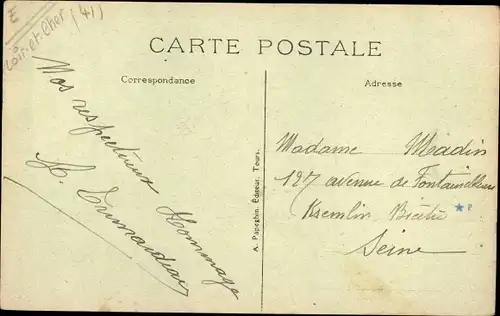 E
Loir-et-Cher (41)
CARTE POSTALE
Correspondance
Adresse
Mes respectueux Hommage
A. Papeghin, Éditeur, Tours.
Madame Madin
127 avenue de Fontainebleau
Kremlin Bicêtre
Seine